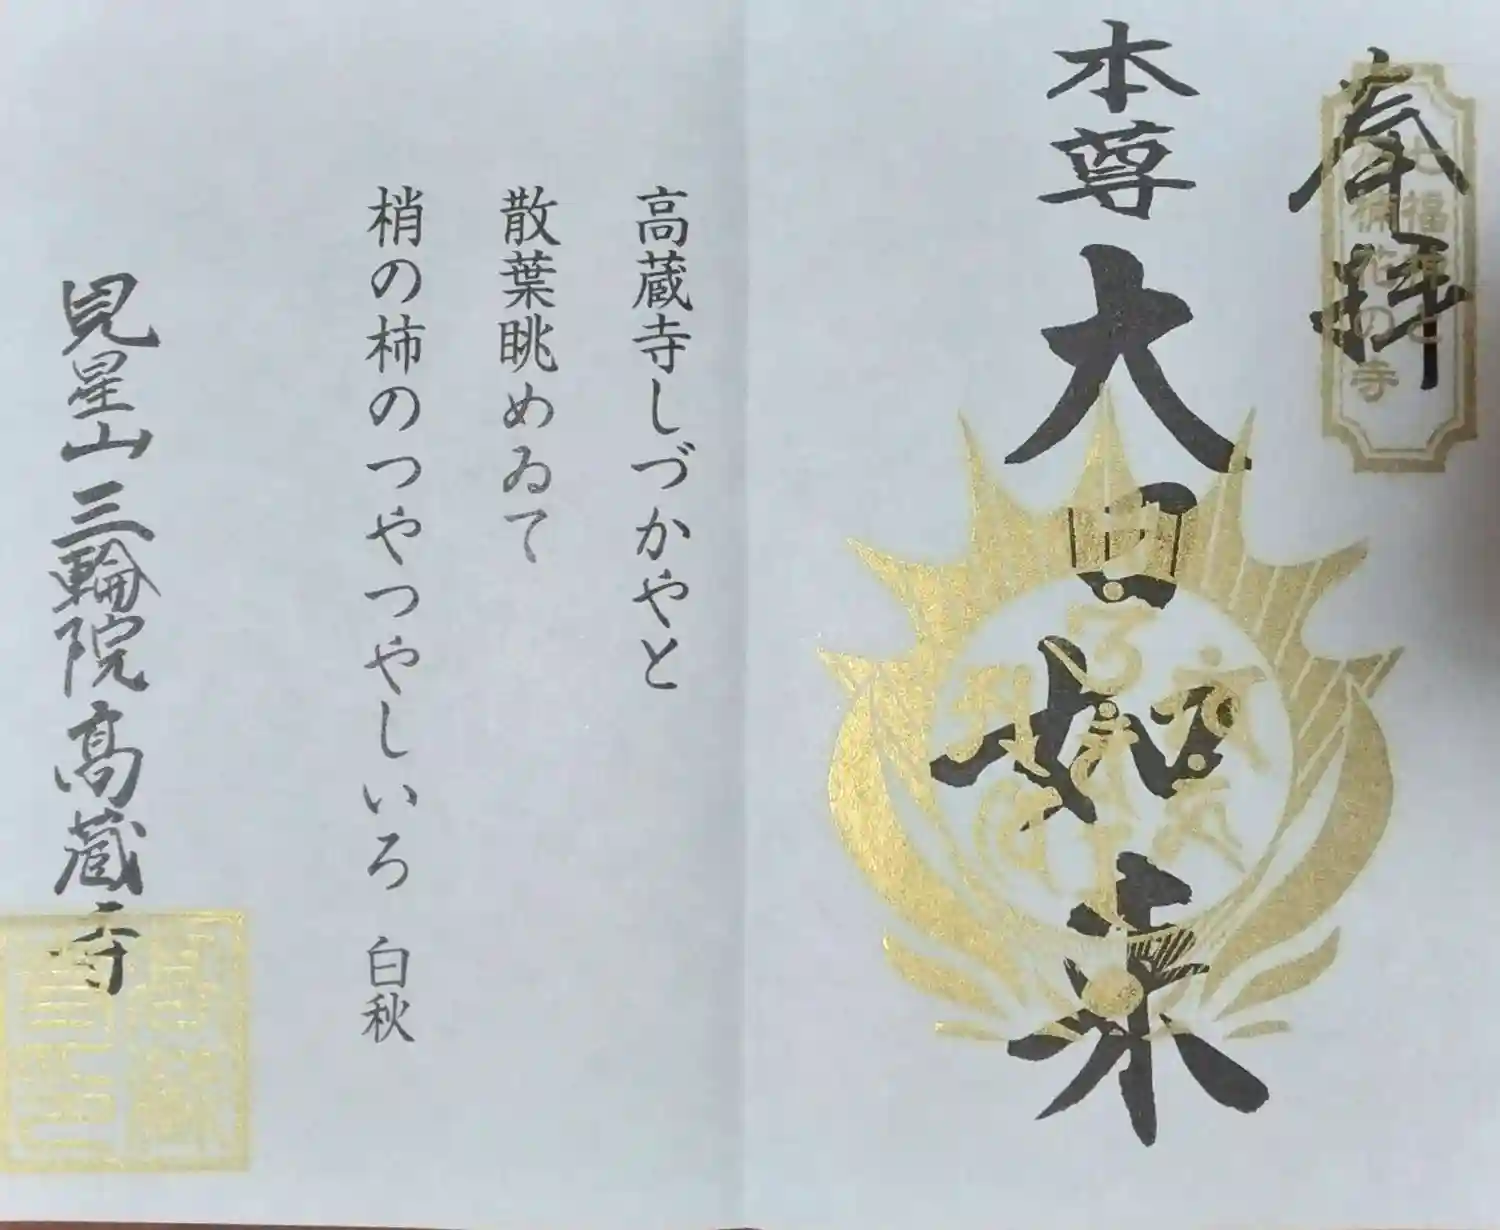 奉拝
七福神と
花の寺
本尊 大日如来
高蔵寺しづかやと
散葉眺めゐて
梢の柿のつやつやしいろ 白秋
見星山三輪院高蔵寺